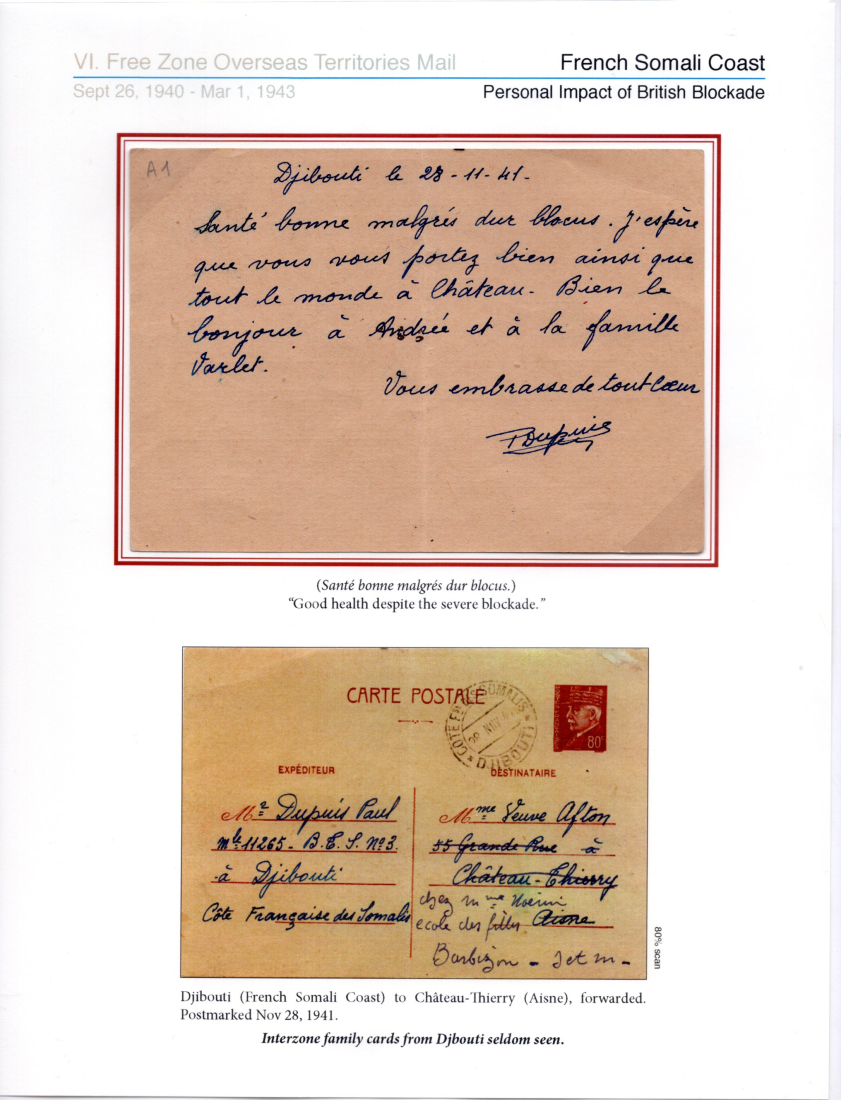 VI. Free Zone Overseas Territories Mail
French Somali Coast
Sept 26, 1940 - Mar 1, 1943
Personal Impact of British Blockade
A1
Djibouti le 28-11-41-
Santé bonne malgrés dur blocus. J'espère
que vous vous portez bien ainsi que
tout le monde à Château- Bien le
bonjour à Andrée et à la famille
Varlet.
Vous embrasse de tout Cœur
PDupuis
(Santé bonne malgrés dur blocus.)
“Good health despite the severe blockade.”
CARTE POSTALE
COTE FR. DES SOMALIS
28 NOV
DJIBOUTI
80c
EXPÉDITEUR
DESTINATAIRE
Mr Dupuis Paul
mle 11265- B.E.S. No3.
à Djibouti
Côte Française des Somalis
Mme Veuve Afton
55 Grande Rue à
Château-Thierry
chez mme
ecole des filles Aisne
Barbizon - Set M-
80% scan
Djibouti (French Somali Coast) to Château-Thierry (Aisne), forwarded.
Postmarked Nov 28, 1941.
Interzone family cards from Djbouti seldom seen.